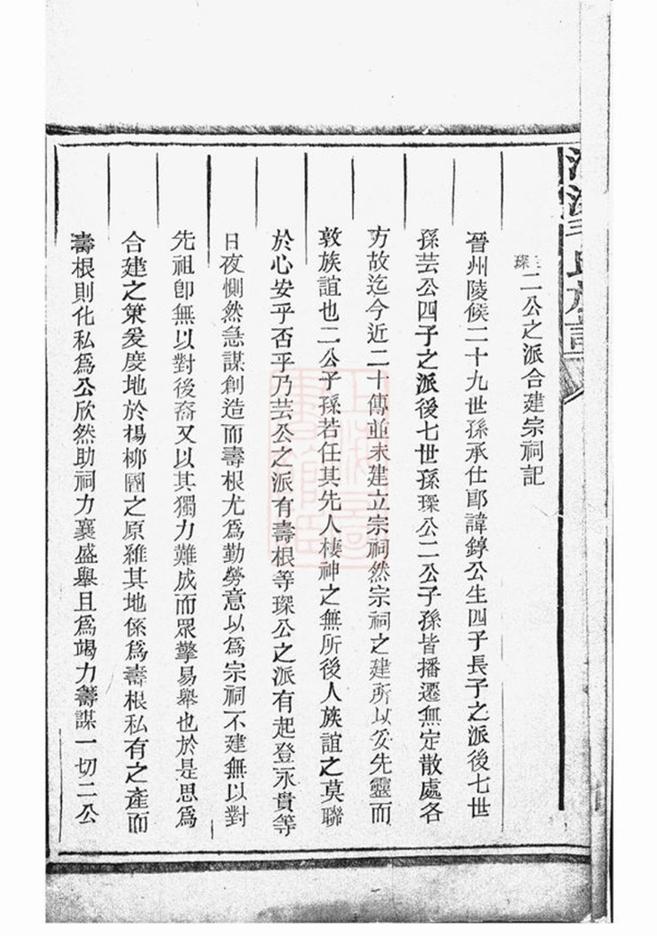 琛二公之派合建宗祠記
晉州陵候二十九世孫承仕郎諱錞公生四子長子之派後七世
孫芸公四子之派後七世孫琛公二公子孫皆播遷無定散處各
方故迄今近二十傳並未建立宗祠然宗祠之建所以妥先靈而
敦族誼也二公子孫若任其先人棲神之無所後人族誼之莫聯
於心安乎否乎乃芸公之派有壽根等琛公之派有起登永貴等
日夜惻然急謀創造而壽根尤為勤勞意以為宗祠不建無以對
先祖卽無以對後裔又以其獨力難成而眾擎易舉也於是思爲
合建之策爰度地於楊柳圈之原雖其地係爲壽根私有之產而
壽根則化私爲公欣然助祠力襄盛舉且爲竭力籌謀一切二公